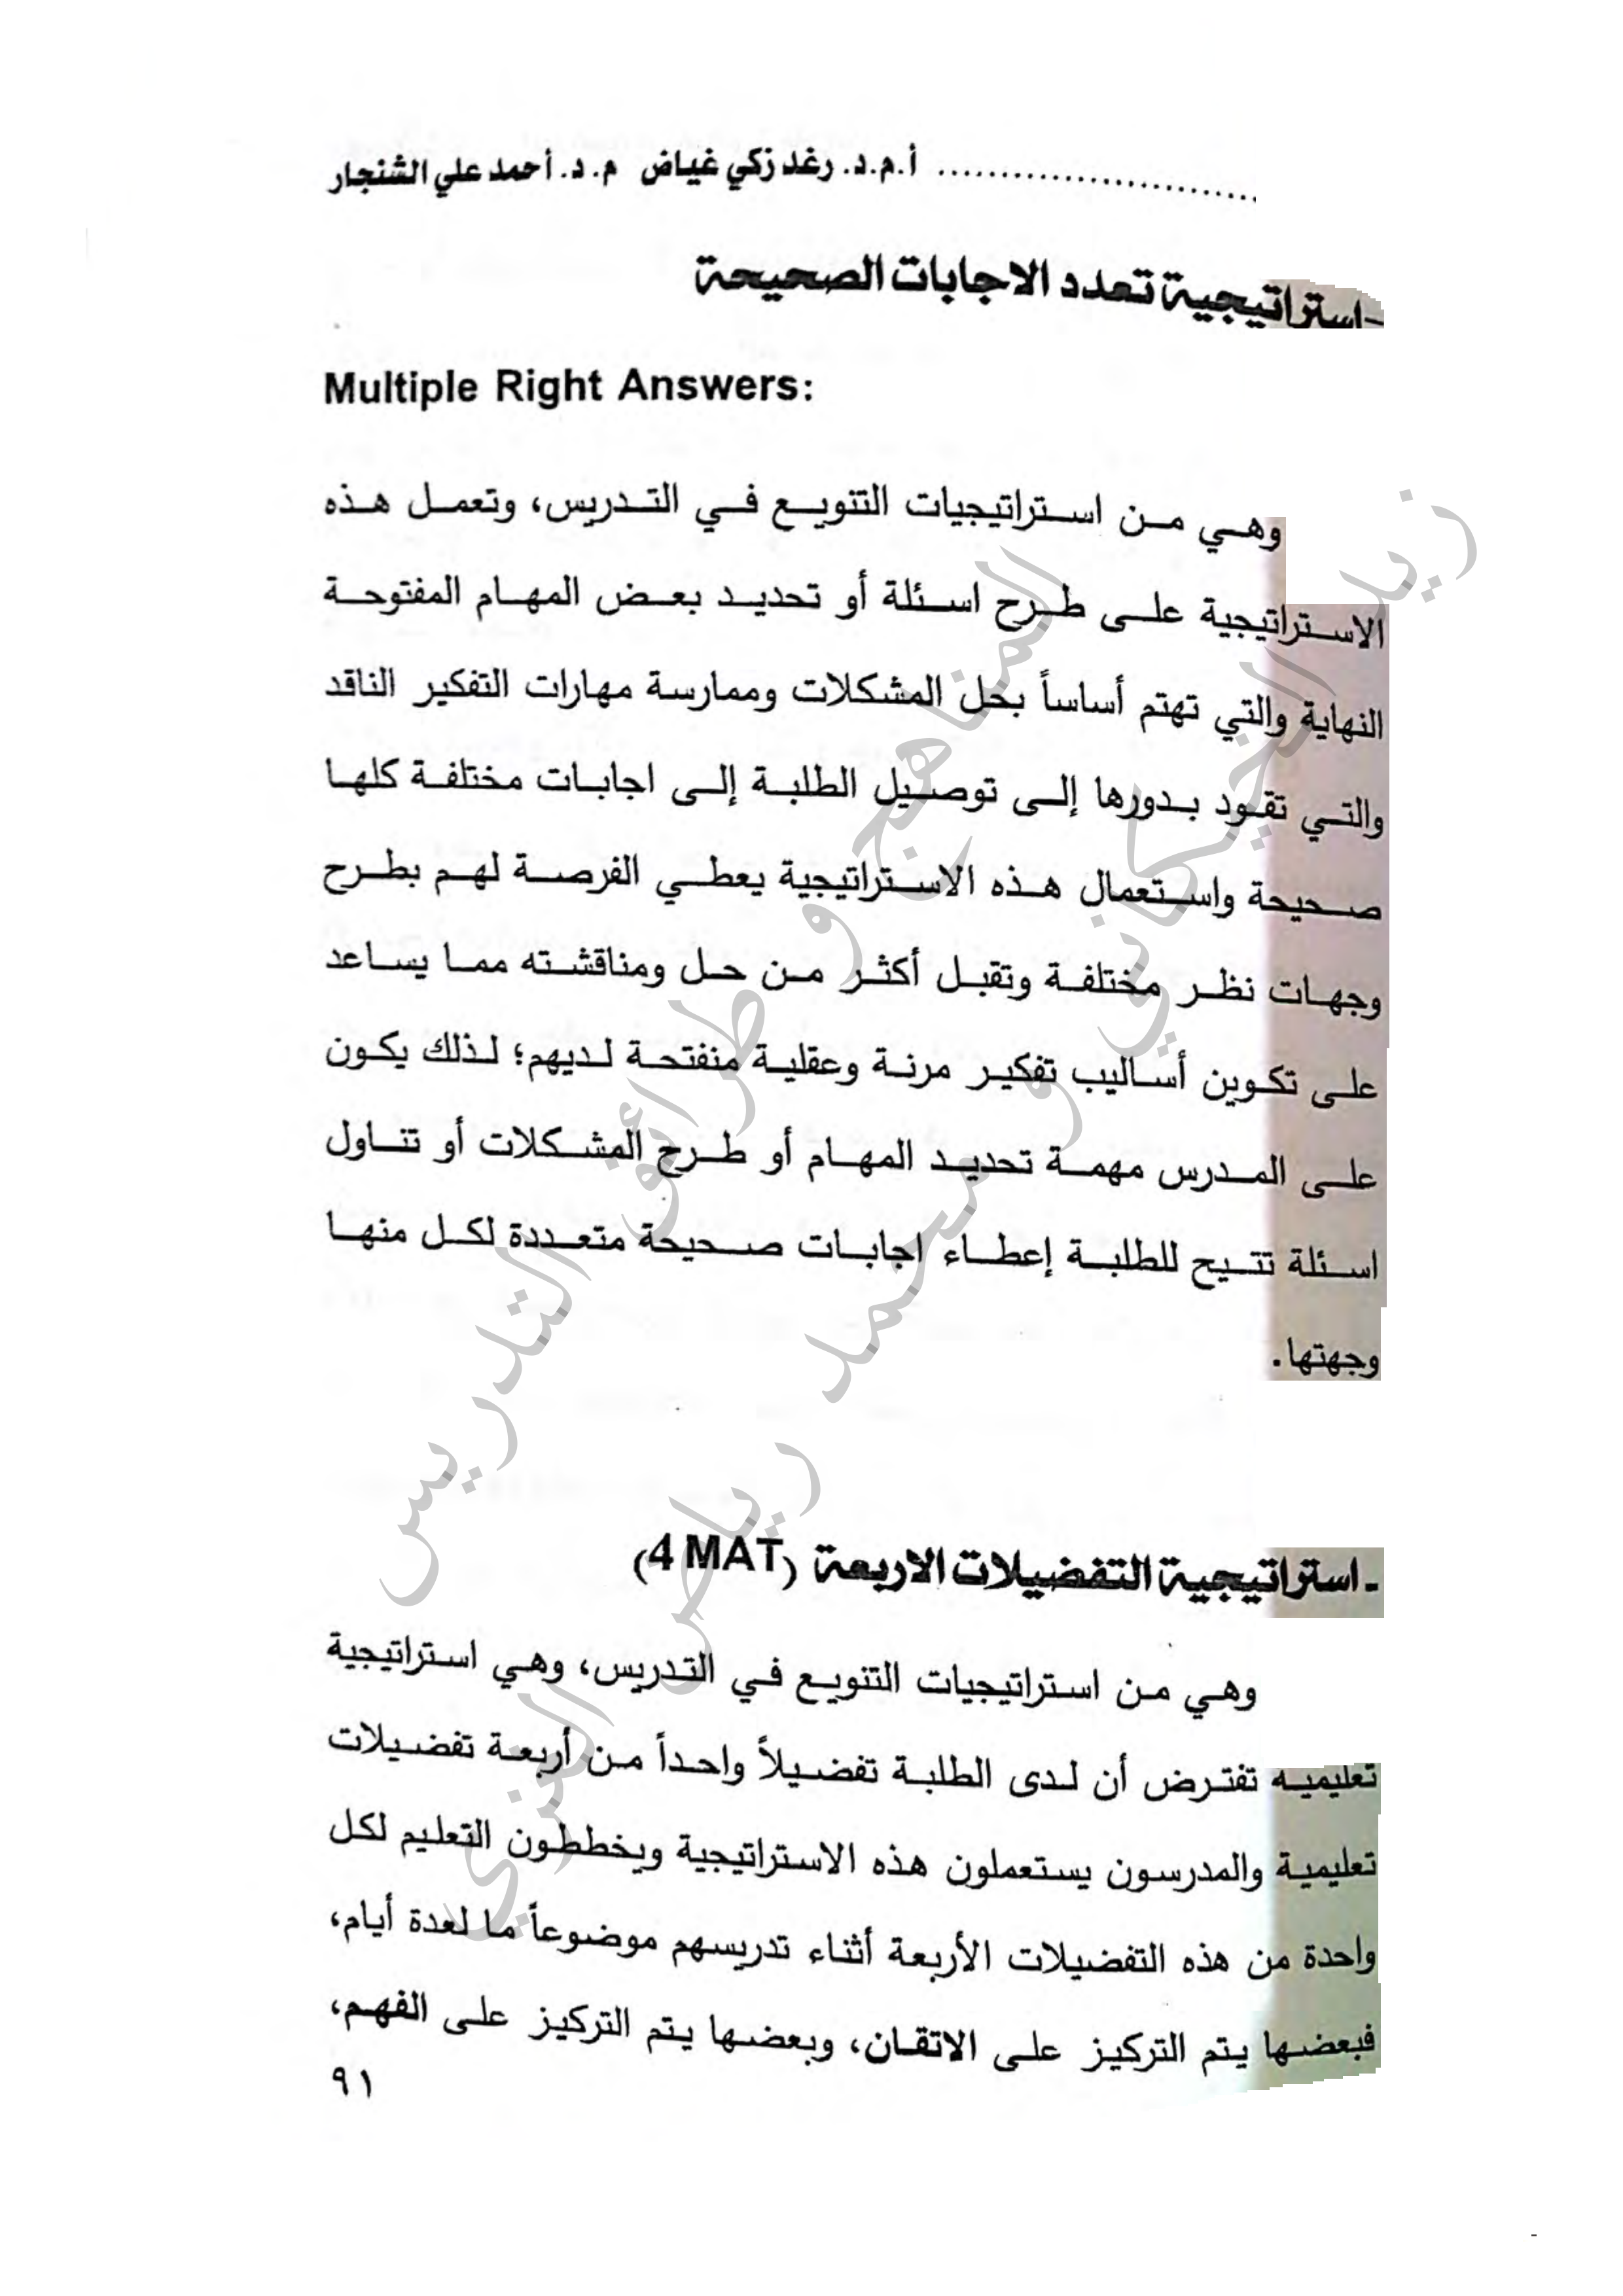 أ.م.د. رغد زكي غياض م. د. أحمد علي الشنجار
-استراتيجية تعدد الاجابات الصحيحة
Multiple Right Answers:
وهي من استراتيجيات التنويع في التدريس، وتعمل هذه
الاستراتيجية على طرح اسئلة أو تحديد بعض المهام المفتوحة
النهاية والتي تهتم أساساً بحل المشكلات وممارسة مهارات التفكير الناقد
والتي تقود بدورها إلى توصيل الطلبة إلى اجابات مختلفة كلها
صحيحة واستعمال هذه الاستراتيجية يعطي الفرصة لهم بطرح
وجهات نظر مختلفة وتقبل أكثر من حل ومناقشته مما يساعد
على تكوين أساليب تفكير مرنة وعقلية منفتحة لديهم؛ لذلك يكون
على المدرس مهمة تحديد المهام أو طرح المشكلات أو تناول
اسئلة تتيح للطلبة إعطاء اجابات صحيحة متعددة لكل منها
وجهتها.
- استراتيجية التفضيلات الاربعة (4 MAT)
وهي من استراتيجيات التنويع في التدريس، وهي استراتيجية
تعليمية تفترض أن لدى الطلبة تفضيلاً واحداً من أربعة تفضيلات
تعليمية والمدرسون يستعملون هذه الاستراتيجية ويخططون التعليم لكل
واحدة من هذه التفضيلات الأربعة أثناء تدريسهم موضوعاً ما لعدة أيام،
فبعضها يتم التركيز على الاتقان، وبعضها يتم التركيز على الفهم،
٩١
المناهج و طرائق التدريس
زيد الخيكاني و محمد رياض العنزي
-